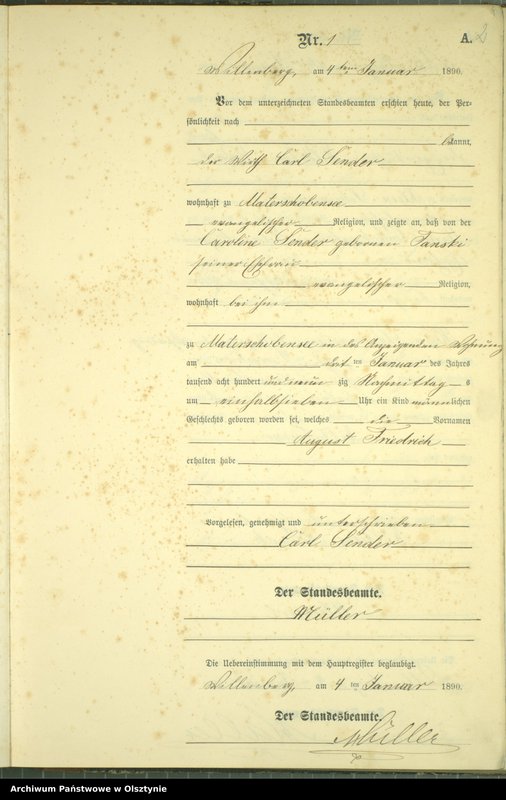 Nr. 1 A. 2
Willenberg, am 4 ten Januar 1890.
Vor dem unterzeichneten Standesbeamten erschien heute, der Per-
sönlichkeit nach
bekannt,
der Wirth Carl Sender
wohnhaft zu Materschobensee
evangelischer Religion, und zeigte an, daß von der
Caroline Sender geborenen Janski
seiner Ehefrau
evangelischer Religion,
wohnhaft bei ihm
zu Materschobensee in des Anzeigenden Wohnung
am ten Januar des Jahres
tausend acht hundert und neun zig Nachmittag s
um einhalbsieben Uhr ein Kind männlichen
Geschlechts geboren worden sei, welches die Vornamen
August Friedrich
erhalten habe
Vorgelesen, genehmigt und unterschrieben
Carl Sender
Der Standesbeamte.
Müller
Die Uebereinstimmung mit dem Hauptregister beglaubigt.
Willenberg, am 4 ten Januar 1890.
Der Standesbeamte.
Müller
Archiwum Państwowe w Olsztynie